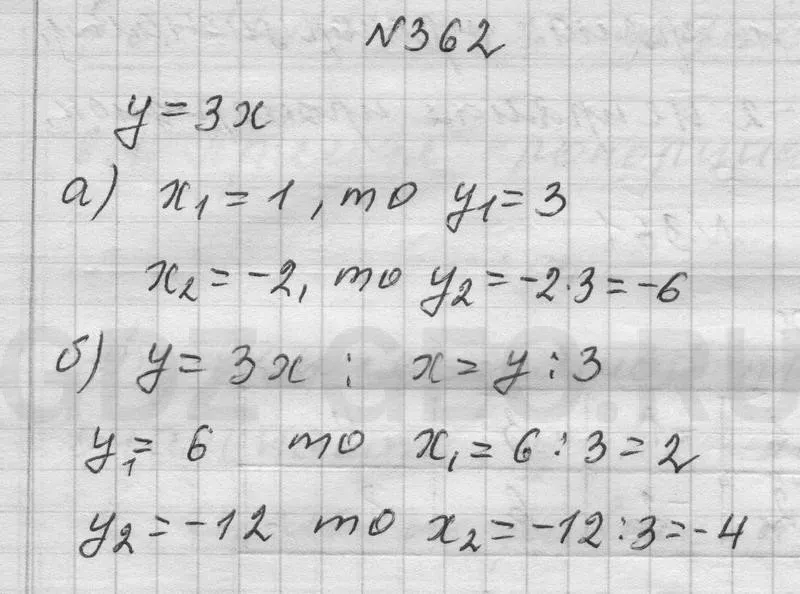 №362
y = 3x
а) x₁ = 1, то y₁ = 3
x₂ = -2, то y₂ = -2·3 = -6
б) y = 3x; x = y : 3
y₁ = 6 то x₁ = 6 : 3 = 2
y₂ = -12 то x₂ = -12 : 3 = -4